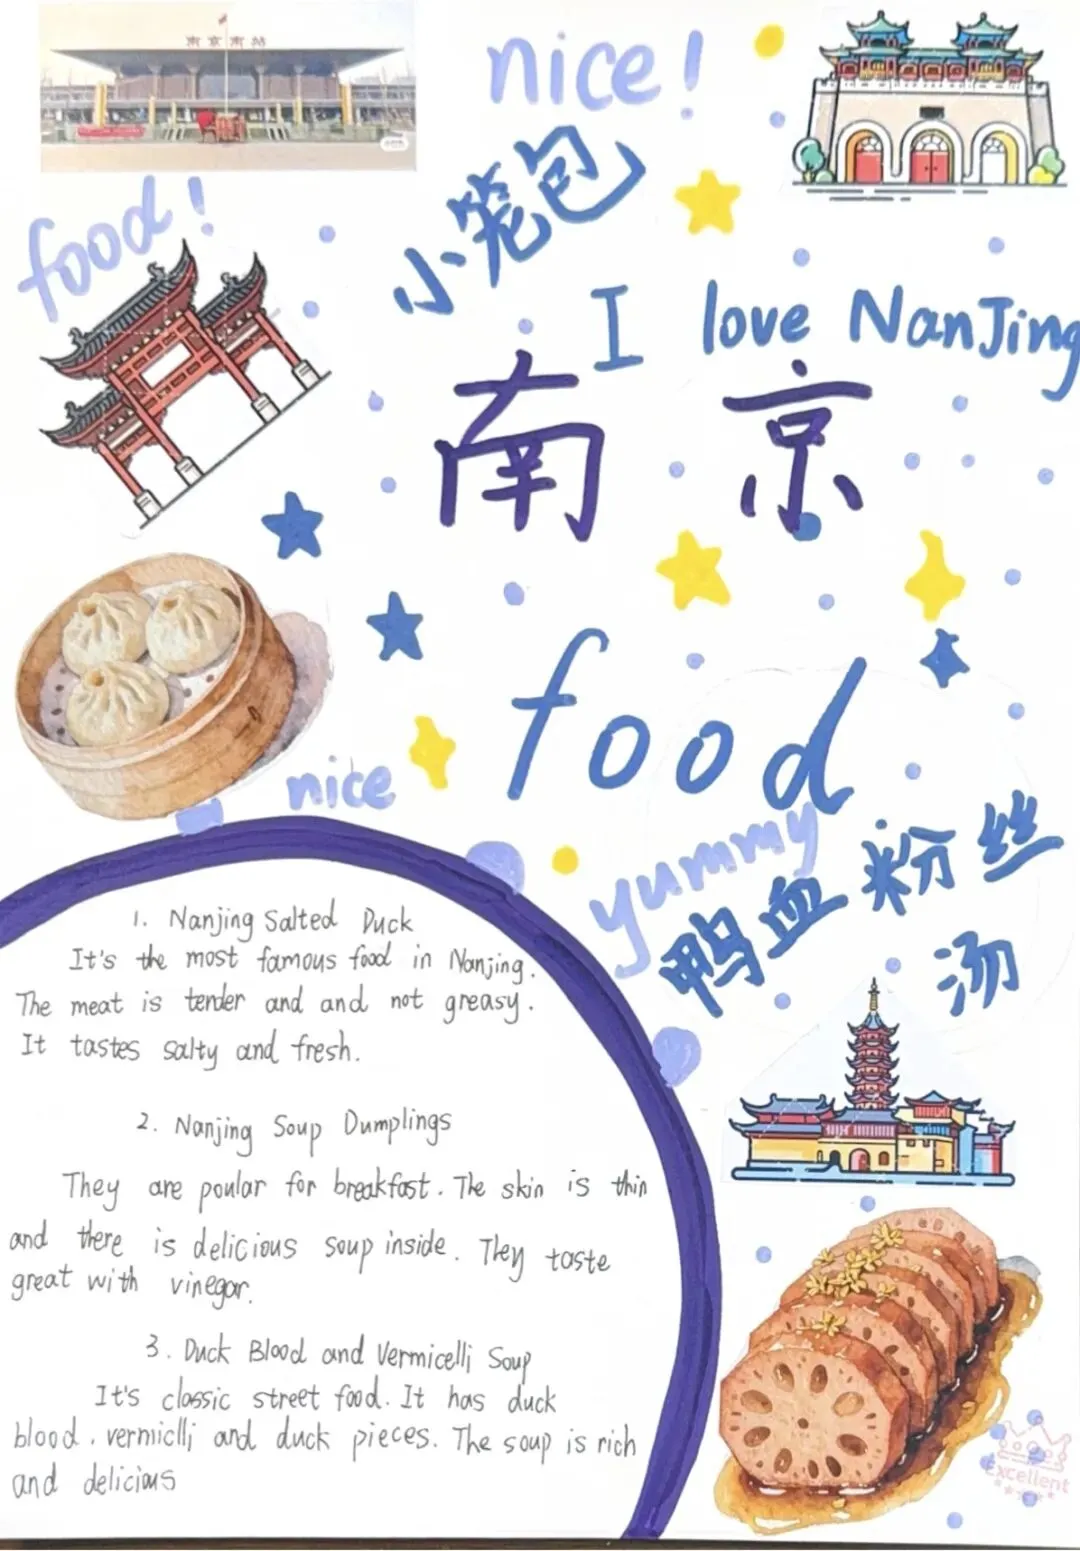 南京南站
nice!
food!
小笼包
I love NanJing
南京
food
nice
yummy
鸭血粉丝
汤
1. Nanjing Salted Duck
It's the most famous food in Nanjing.
The meat is tender and and not greasy.
It tastes salty and fresh.
2. Nanjing Soup Dumplings
They are poular for breakfast. The skin is thin
and there is delicious soup inside. They taste
great with vinegar.
3. Duck Blood and Vermicelli Soup
It's classic street food. It has duck
blood, vermiclli and duck pieces. The soup is rich
and delicious
Excellent